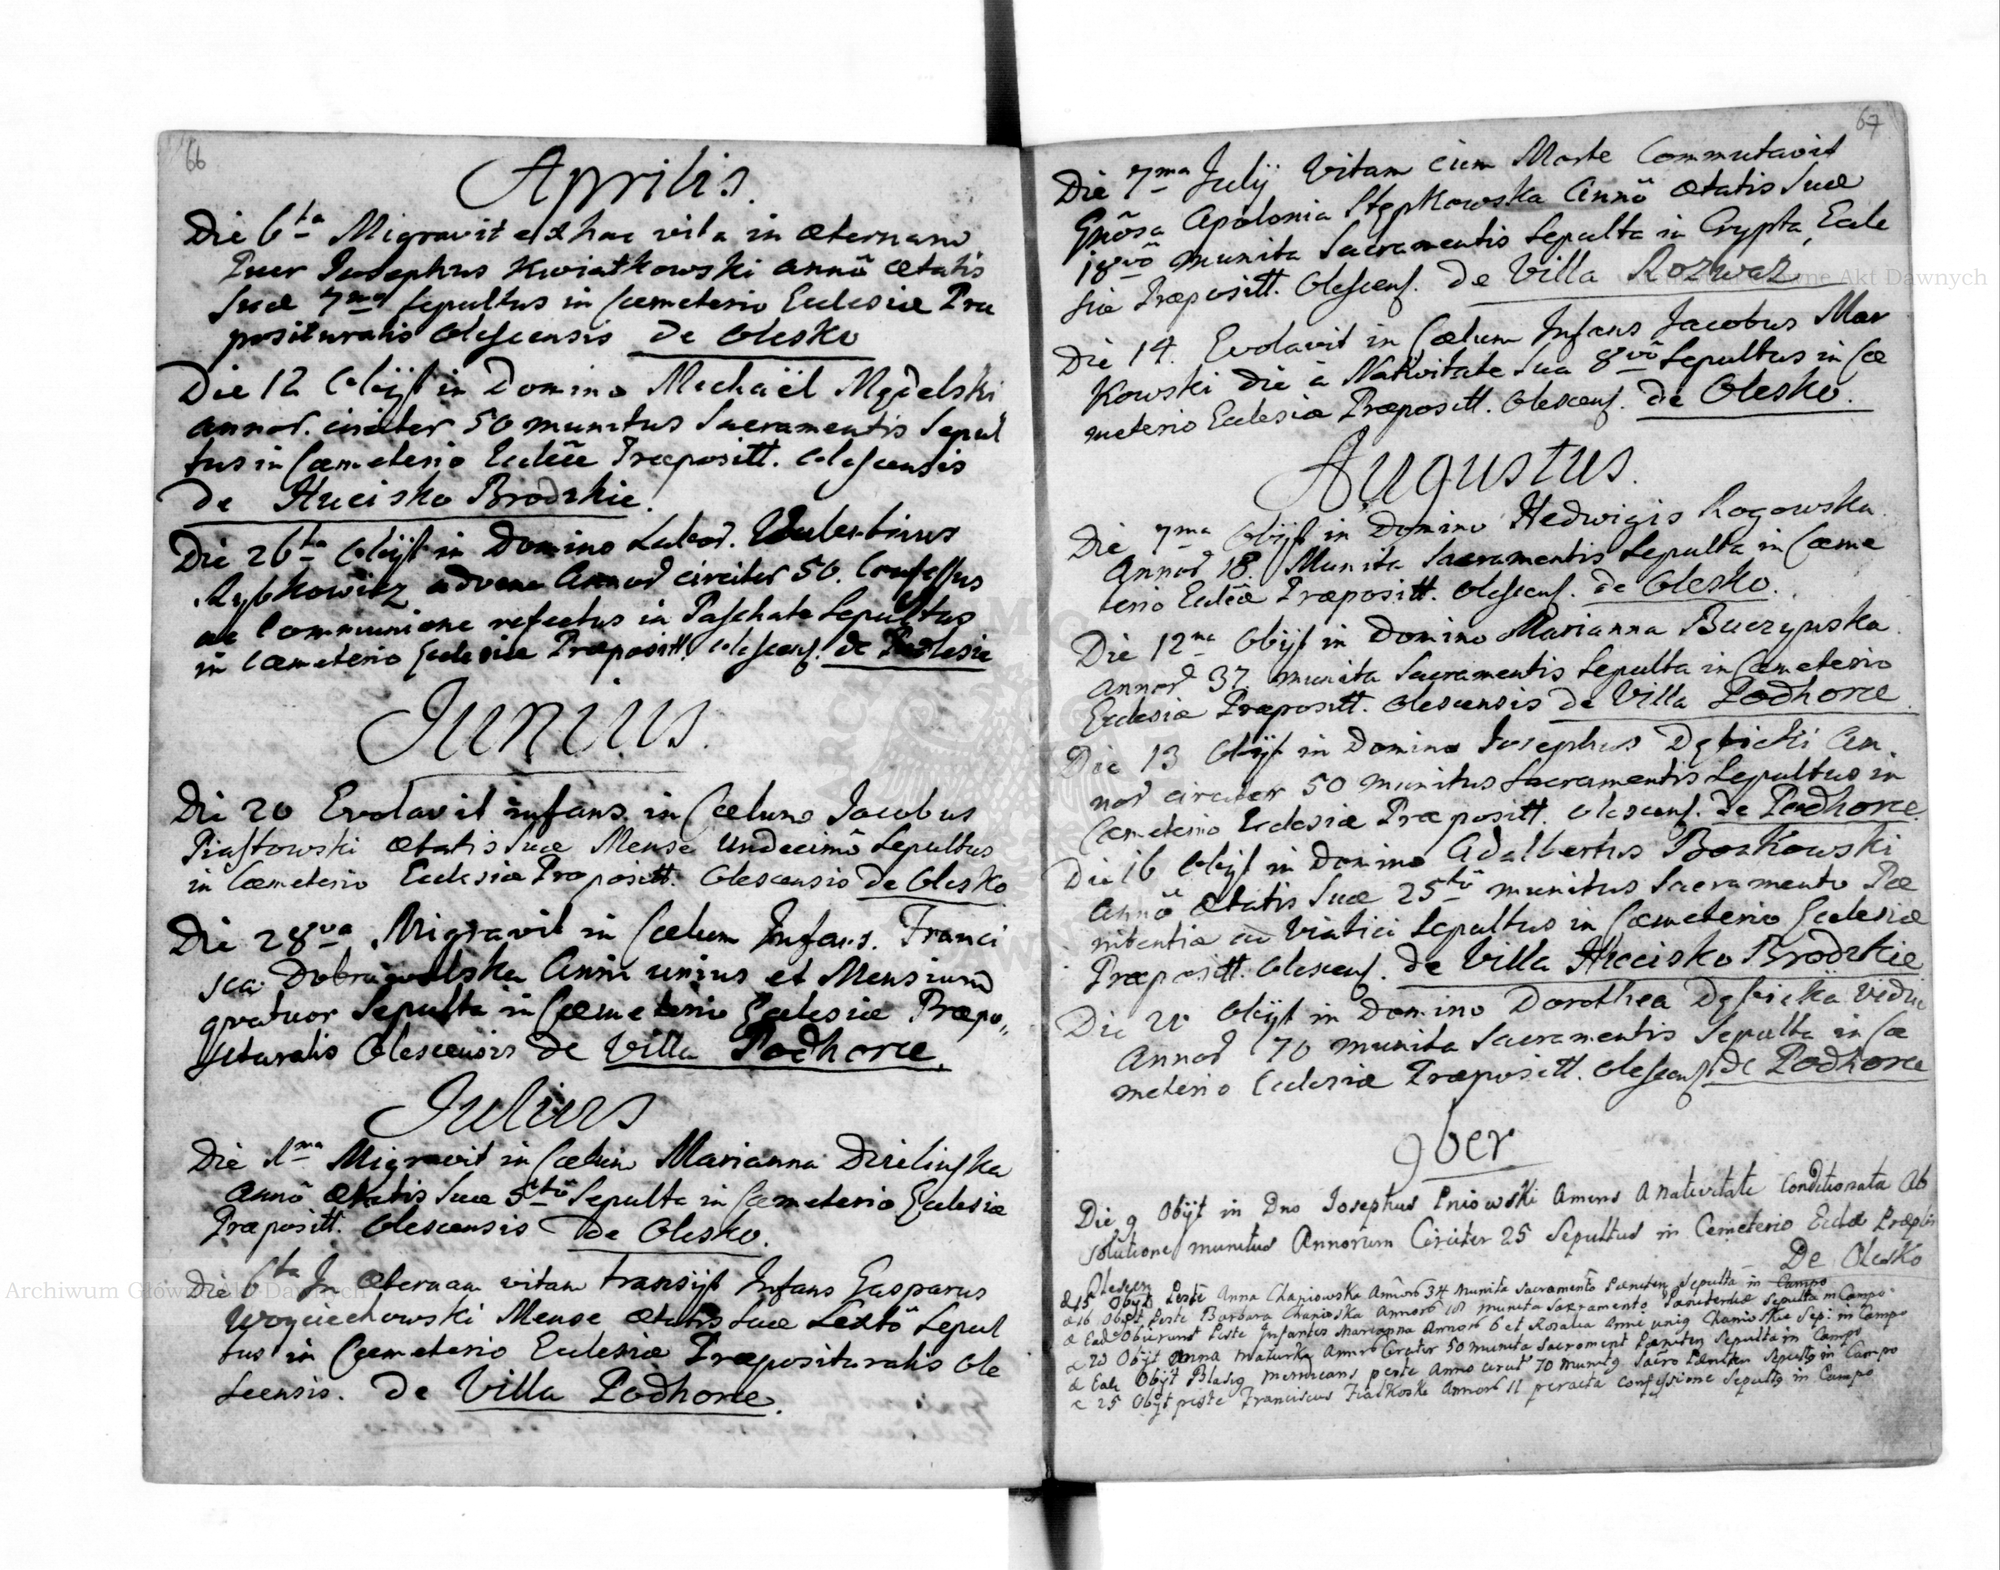 66
Aprilis.
Die 6ta Migravit ex hac vita in æternam
Puer Josephus Kwiatkowski annô ætatis
Suæ 7mo Sepultus in Cæmeterio Ecclesiæ Præ
posituralis Olescensis de Olesko
Die 12 Obijt in Domino Michaël Mędelski
annor. circiter 50 munitus Sacramentis Sepul
tus in Cæmeterio Eccleæ Præpositt. Olescensis
de Hucisko Brodzkie.
Die 26ta Obijt in Domino Labor. Valentinus
Rybkowicz advena Annor circiter 50. Confessus
ac Communione refectus in Paschate Sepultus
in Cæmeterio Ecclesiæ Præpositt. Olescens. de Podlesie
Junius.
Die 20 Evolavit infans in Cælum Jacobus
Piastowski ætatis Suæ Mense Undecimô Sepultus
in Cæmeterio Ecclesiæ Præpositt. Olescensis de Olesko
Die 28va Migravit in Cælum Infans Franci
sca Dobrogolska Anni unius et Mensium
quatuor Sepulta in Cæmeterio Ecclesiæ Præpo„
situralis Olescensis De Villa Podhorce.
Julius
Die 1ma Migravit in Cælum Marianna
annô ætatis Suæ 5tô Sepulta in Cæmeterio Ecclesiæ
Præpositt. Olescensis de Olesko.
Die 6ta In æternam vitam transijt Infans Gasparus
Woyciechowski Mense ætatis Suæ Sextô Sepul
tus in Cæmeterio Ecclesiæ Præposituralis Ole
scensis. De Villa Podhorce.
67
Die 7ma Julij Vitam cum Morte Commutavit
Gnôsa Apolonia Stępkowska Annô ætatis Suæ
18vô munita Sacramentis Sepulta in Crypta Eccle
siæ Præpositt. Olescens. De Villa Rozwaz
Die 14. Evolavit in Cælum Infans Jacobus Mar
kowski die à Nativitate sua 8vô Sepultus in Cæ
meterio Ecclesiæ Præpositt. Olescens. de Olesko.
Augustus.
Die 7ma Obijt in Domino Hedwigis Rogowska
Annor 18. Munita Sacramentis Sepulta in Cæme
terio Eccleæ Præpositt. Olescens. de Olesko.
Die 12ma Obijt in Domino Marianna Buczynska
annor 37. munita Sacramentis Sepulta in Cæmeterio
Ecclesiæ Præpositt. Olescensis de Villa Podhorce
Die 13 Obijt in Domino Josephus Dębicki An„
nor circiter 50 munitus Sacramentis Sepultus in
Cæmeterio Ecclesiæ Præpositt. Olescens. de Podhorce
Die 16 Obijt in Domino Adalbertus Borkowski
Annô ætatis Suæ 25tô munitus Sacramento Pæ
nitentiæ ac Viatici Sepultus in Cæmeterio Ecclesiæ
Præpositt. Olescens. de Villa Hucisko Brodzkie
Die Obijt in Domino Dorothea Dębicka Vidua
Annor 70 munita Sacramentis Sepulta in Cæ
meterio Ecclesiæ Præpositt. Olescens. de Podhorce
9ber
Die 9 Obijt in Dno Josephus Pniowski Amens a nativitate Conditionata Ab
solutione munitus Annorum Circiter 25 Sepultus in Cemeterio Præplis
Olescen De Olesko
d 15 Obijt Peste Anna Chaniowska Annor 34 munita Sacramento Pæniten Sepulta in Campo
d 16 Obijt Peste Barbara Annor 18 munita Sacramento Pænitentiæ Sepulta in Campo
d Ead Obierunt Peste Infantes Marianna Annor 6 et Rosalia Anni Sep: in Campo
d 20 Obijt Anna Maturka Annor Circiter 50 munita Sacrament Pæniten Sepulta in Campo
d Ead Obijt peste Anno circit 70 Sacro Pæniten in Campo
d 25 Obijt peste Franciscus Annor 11 peracta confessione in Campo
Archiwum Główne Akt Dawnych
Archiwum Główne Akt Dawnych